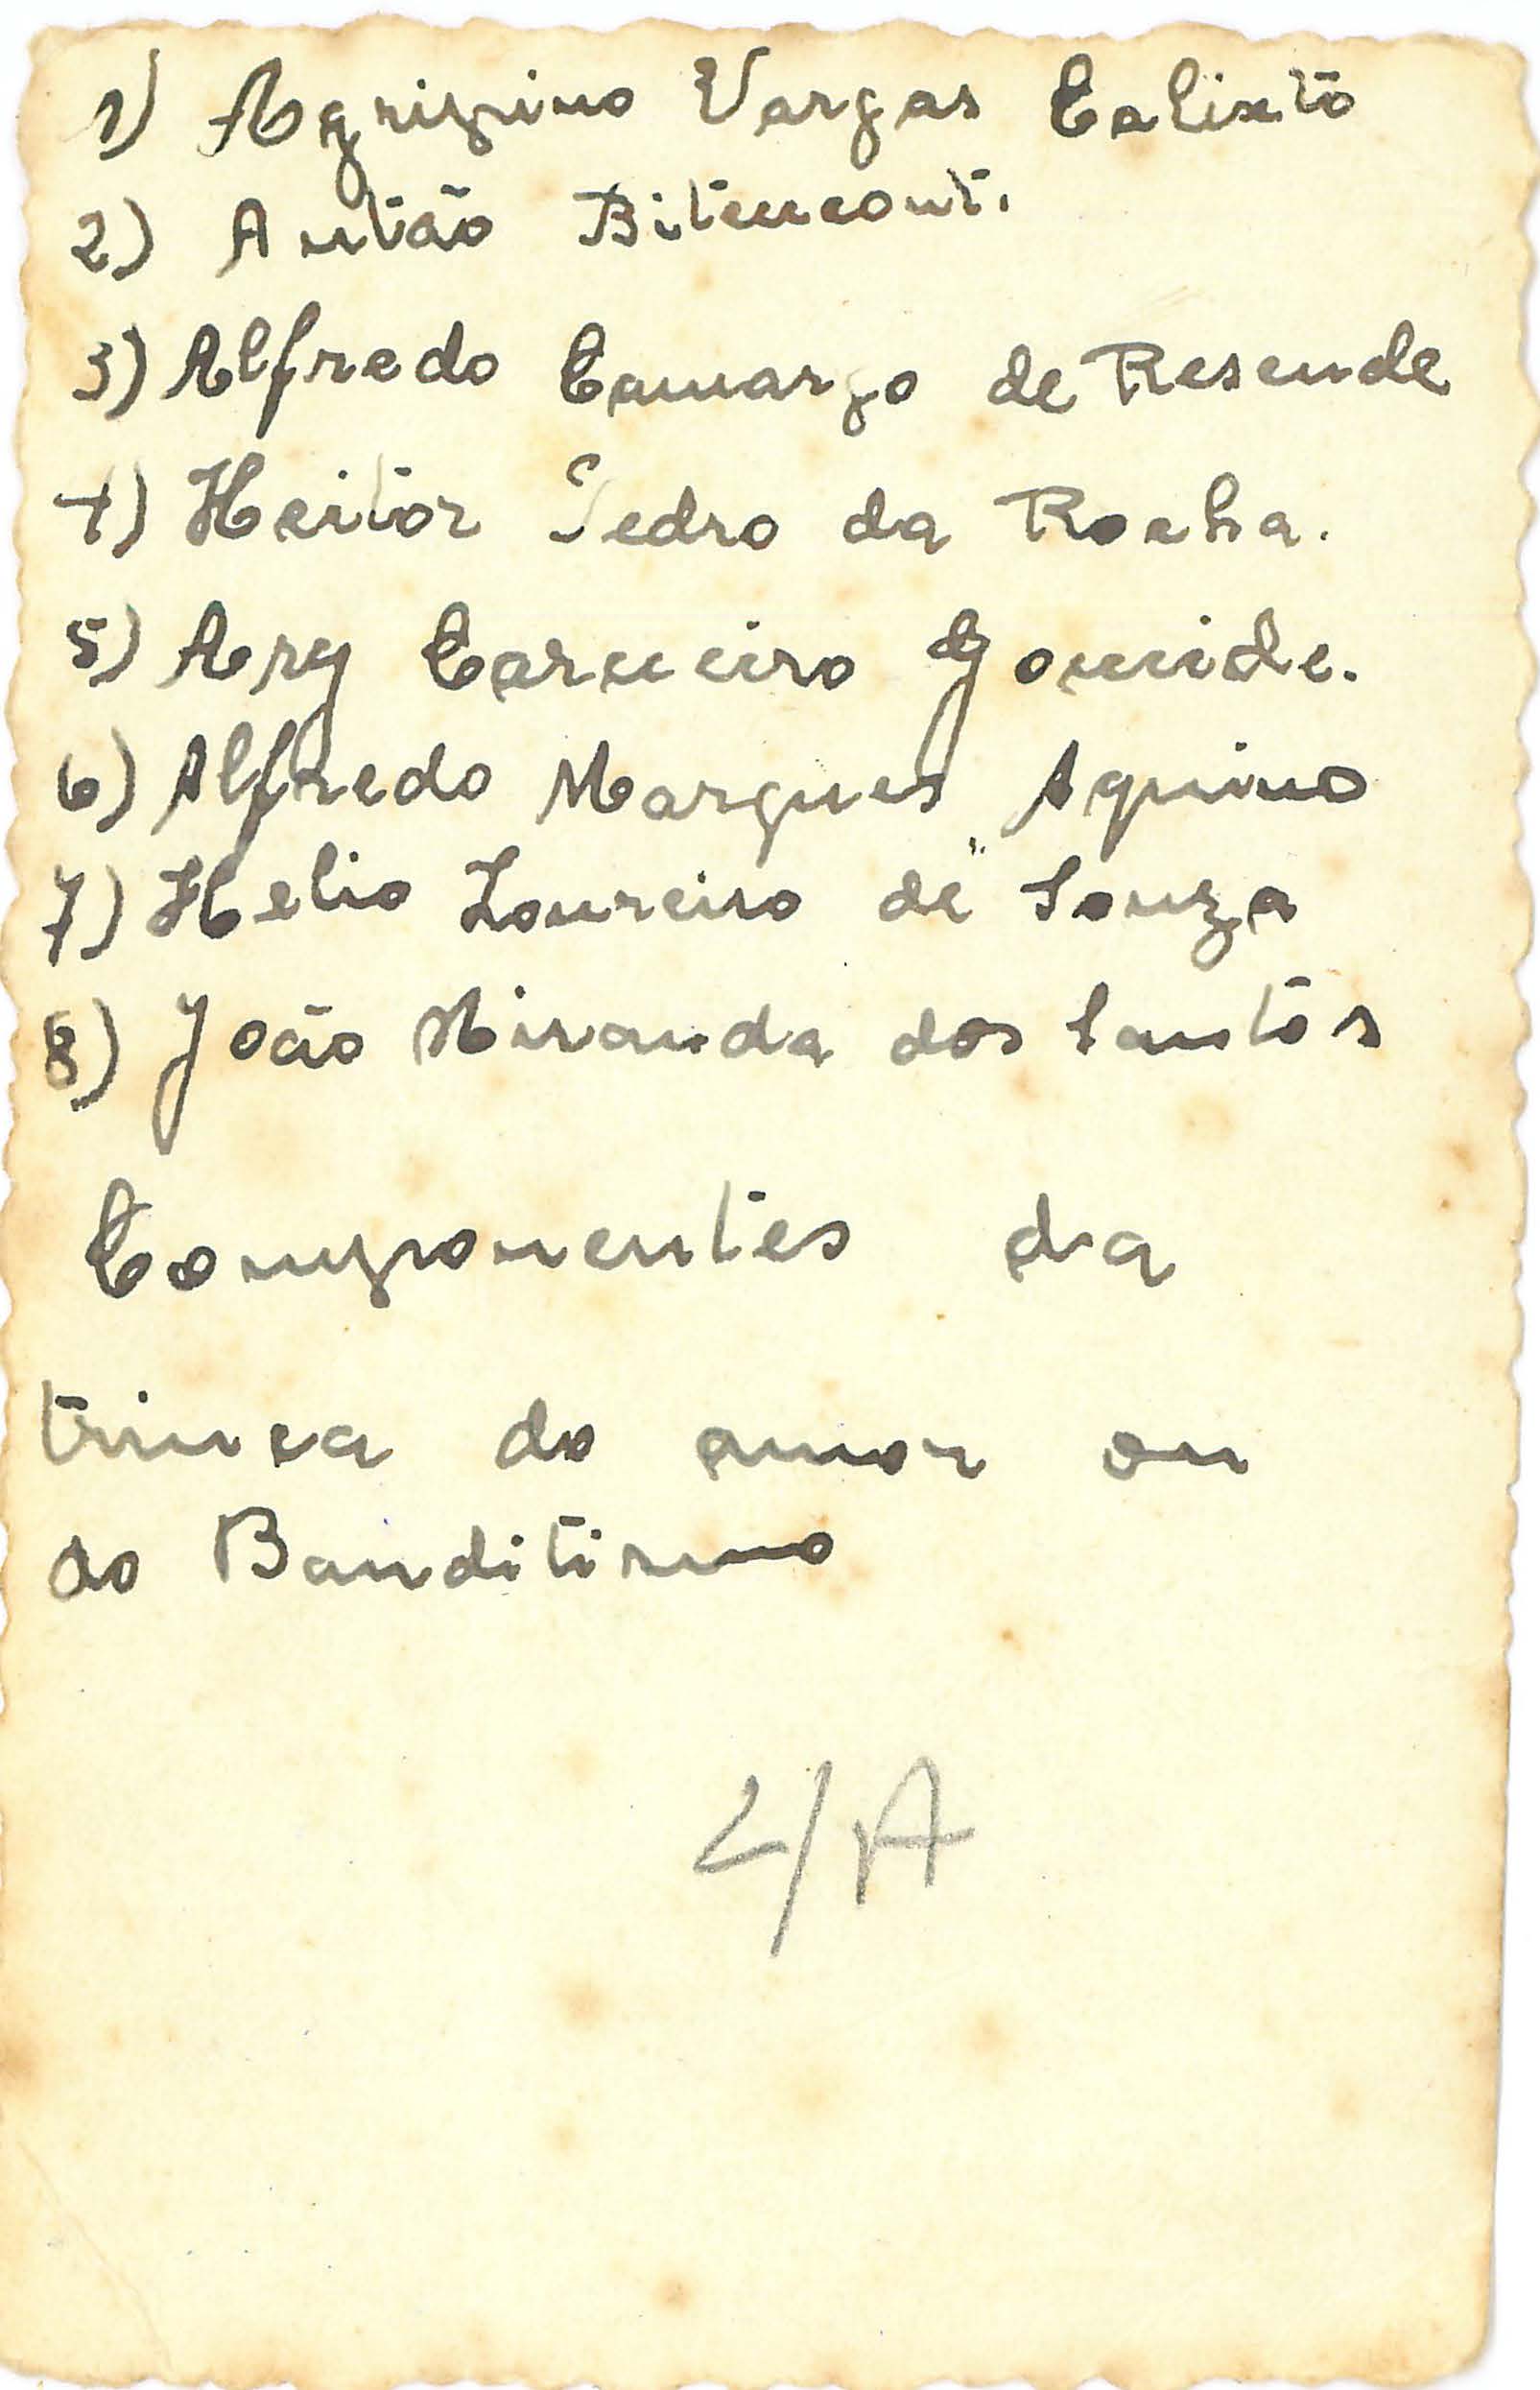 1) Agripino Vargas Calixto
2) Antão Bitencont.
3) Alfredo Camargo de Resende
4) Heitor Pedro da Rocha.
5) Ary Carneiro Gomide.
6) Alfredo Marques Aquino
7) Helio Loureiro de Souza
8) João Miranda dos Santos
Componentes da
trinca do amor ou
do Banditismo
2/A